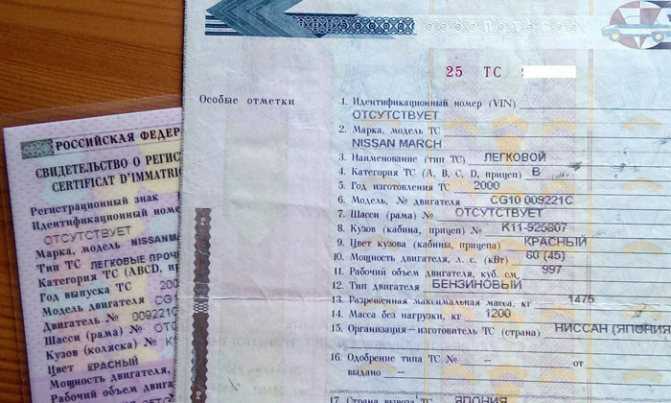 25 ТС
Особые отметки
1. Идентификационный номер (VIN)
ОТСУТСТВУЕТ
2. Марка, модель ТС
NISSAN MARCH
3. Наименование (тип ТС) ЛЕГКОВОЙ
4. Категория ТС (A, B, C, D, прицеп) B
5. Год изготовления ТС 2000
6. Модель, № двигателя CG10 009221C
7. Шасси (рама) № ОТСУТСТВУЕТ
8. Кузов (кабина, прицеп) № K11-925807
9. Цвет кузова (кабины, прицепа) КРАСНЫЙ
10. Мощность двигателя, л. с. (кВт) 60 (45)
11. Рабочий объем двигателя, куб. см. 997
12. Тип двигателя БЕНЗИНОВЫЙ
13. Разрешенная максимальная масса, кг 1475
14. Масса без нагрузки, кг 1200
15. Организация-изготовитель ТС (страна) НИССАН (ЯПОНИЯ
16. Одобрение типа ТС № – от
выдано –
17. Страна вывоза ТС ЯПОНИЯ
РОССИЙСКАЯ ФЕДЕР
СВИДЕТЕЛЬСТВО О РЕГИС
CERTIFICAT D'IMMATRIC
Регистрационный знак
Идентификационный номе
ОТСУТСТВУЕТ
Марка, модель NISSAN
Тип ТС ЛЕГКОВЫЕ ПРОЧ
Категория ТС (ABCD, пр
Год выпуска ТС 200
Модель двигателя CG1
Двигатель № 009221C
Шасси (рама) № ОТС
Кузов (коляска) № K1
Цвет КРАСНЫЙ
Мощность двигателя,
Рабочий объем двигат